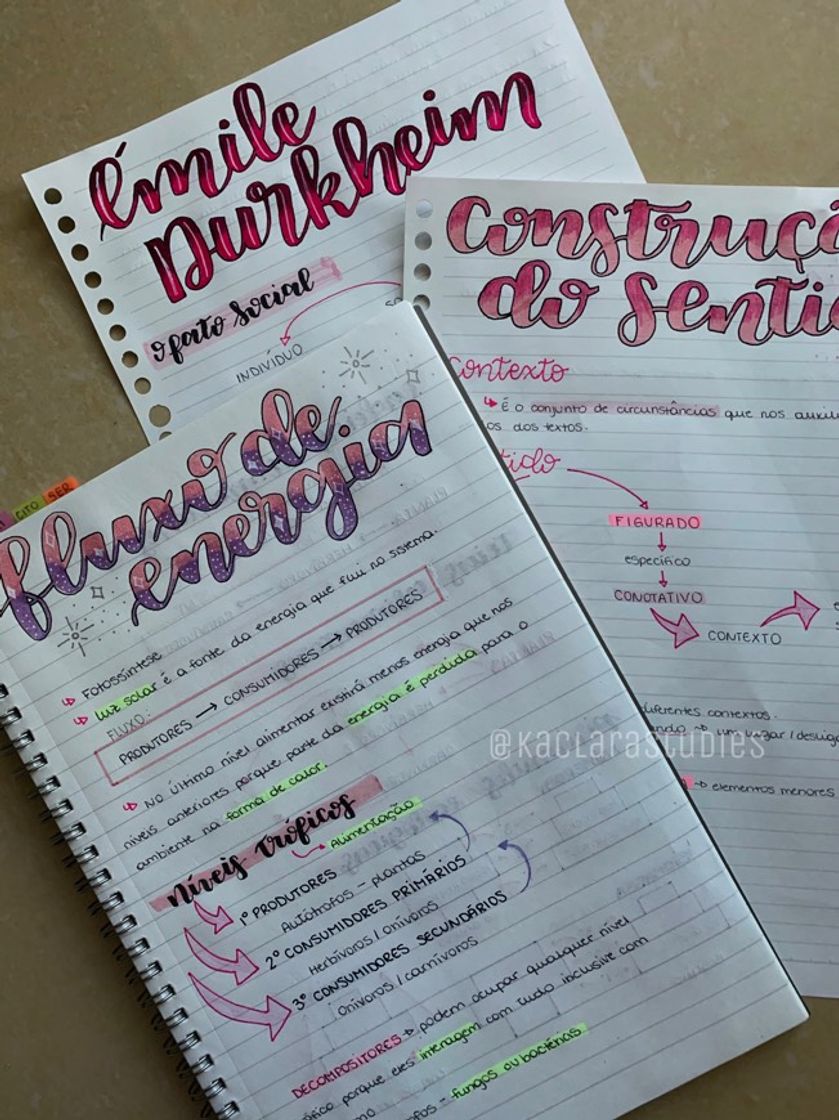 émile
Durkheim
O fato social
INDIVÍDUO
Construçã
do Senti
Contexto
↳ É o conjunto de circunstâncias que nos auxili
os dos textos.
tido
FIGURADO
específico
CONOTATIVO
CONTEXTO
diferentes contextos.
ando → um vagar / desvia
→ elementos menores
CITO
SER
fluxo de
energia
↳ Fotossíntese
↳ Luz solar é a fonte da energia que flui no sistema.
FLUXO:
PRODUTORES → CONSUMIDORES → PRODUTORES
↳ No último nível alimentar existirá menos energia que nos
níveis anteriores porque parte da energia é perdida para o
ambiente na forma de calor.
Níveis tróficos
Alimentação
1º PRODUTORES
Autótrofos - plantas
2º CONSUMIDORES PRIMÁRIOS
Herbívoros / onívoros
3º CONSUMIDORES SECUNDÁRIOS
Onívoros / carnívoros
DECOMPOSITORES → podem ocupar qualquer nível
ófico porque eles interagem com tudo inclusive com
mo
ofos - fungos ou bactérias
@KACLARASTUDIES